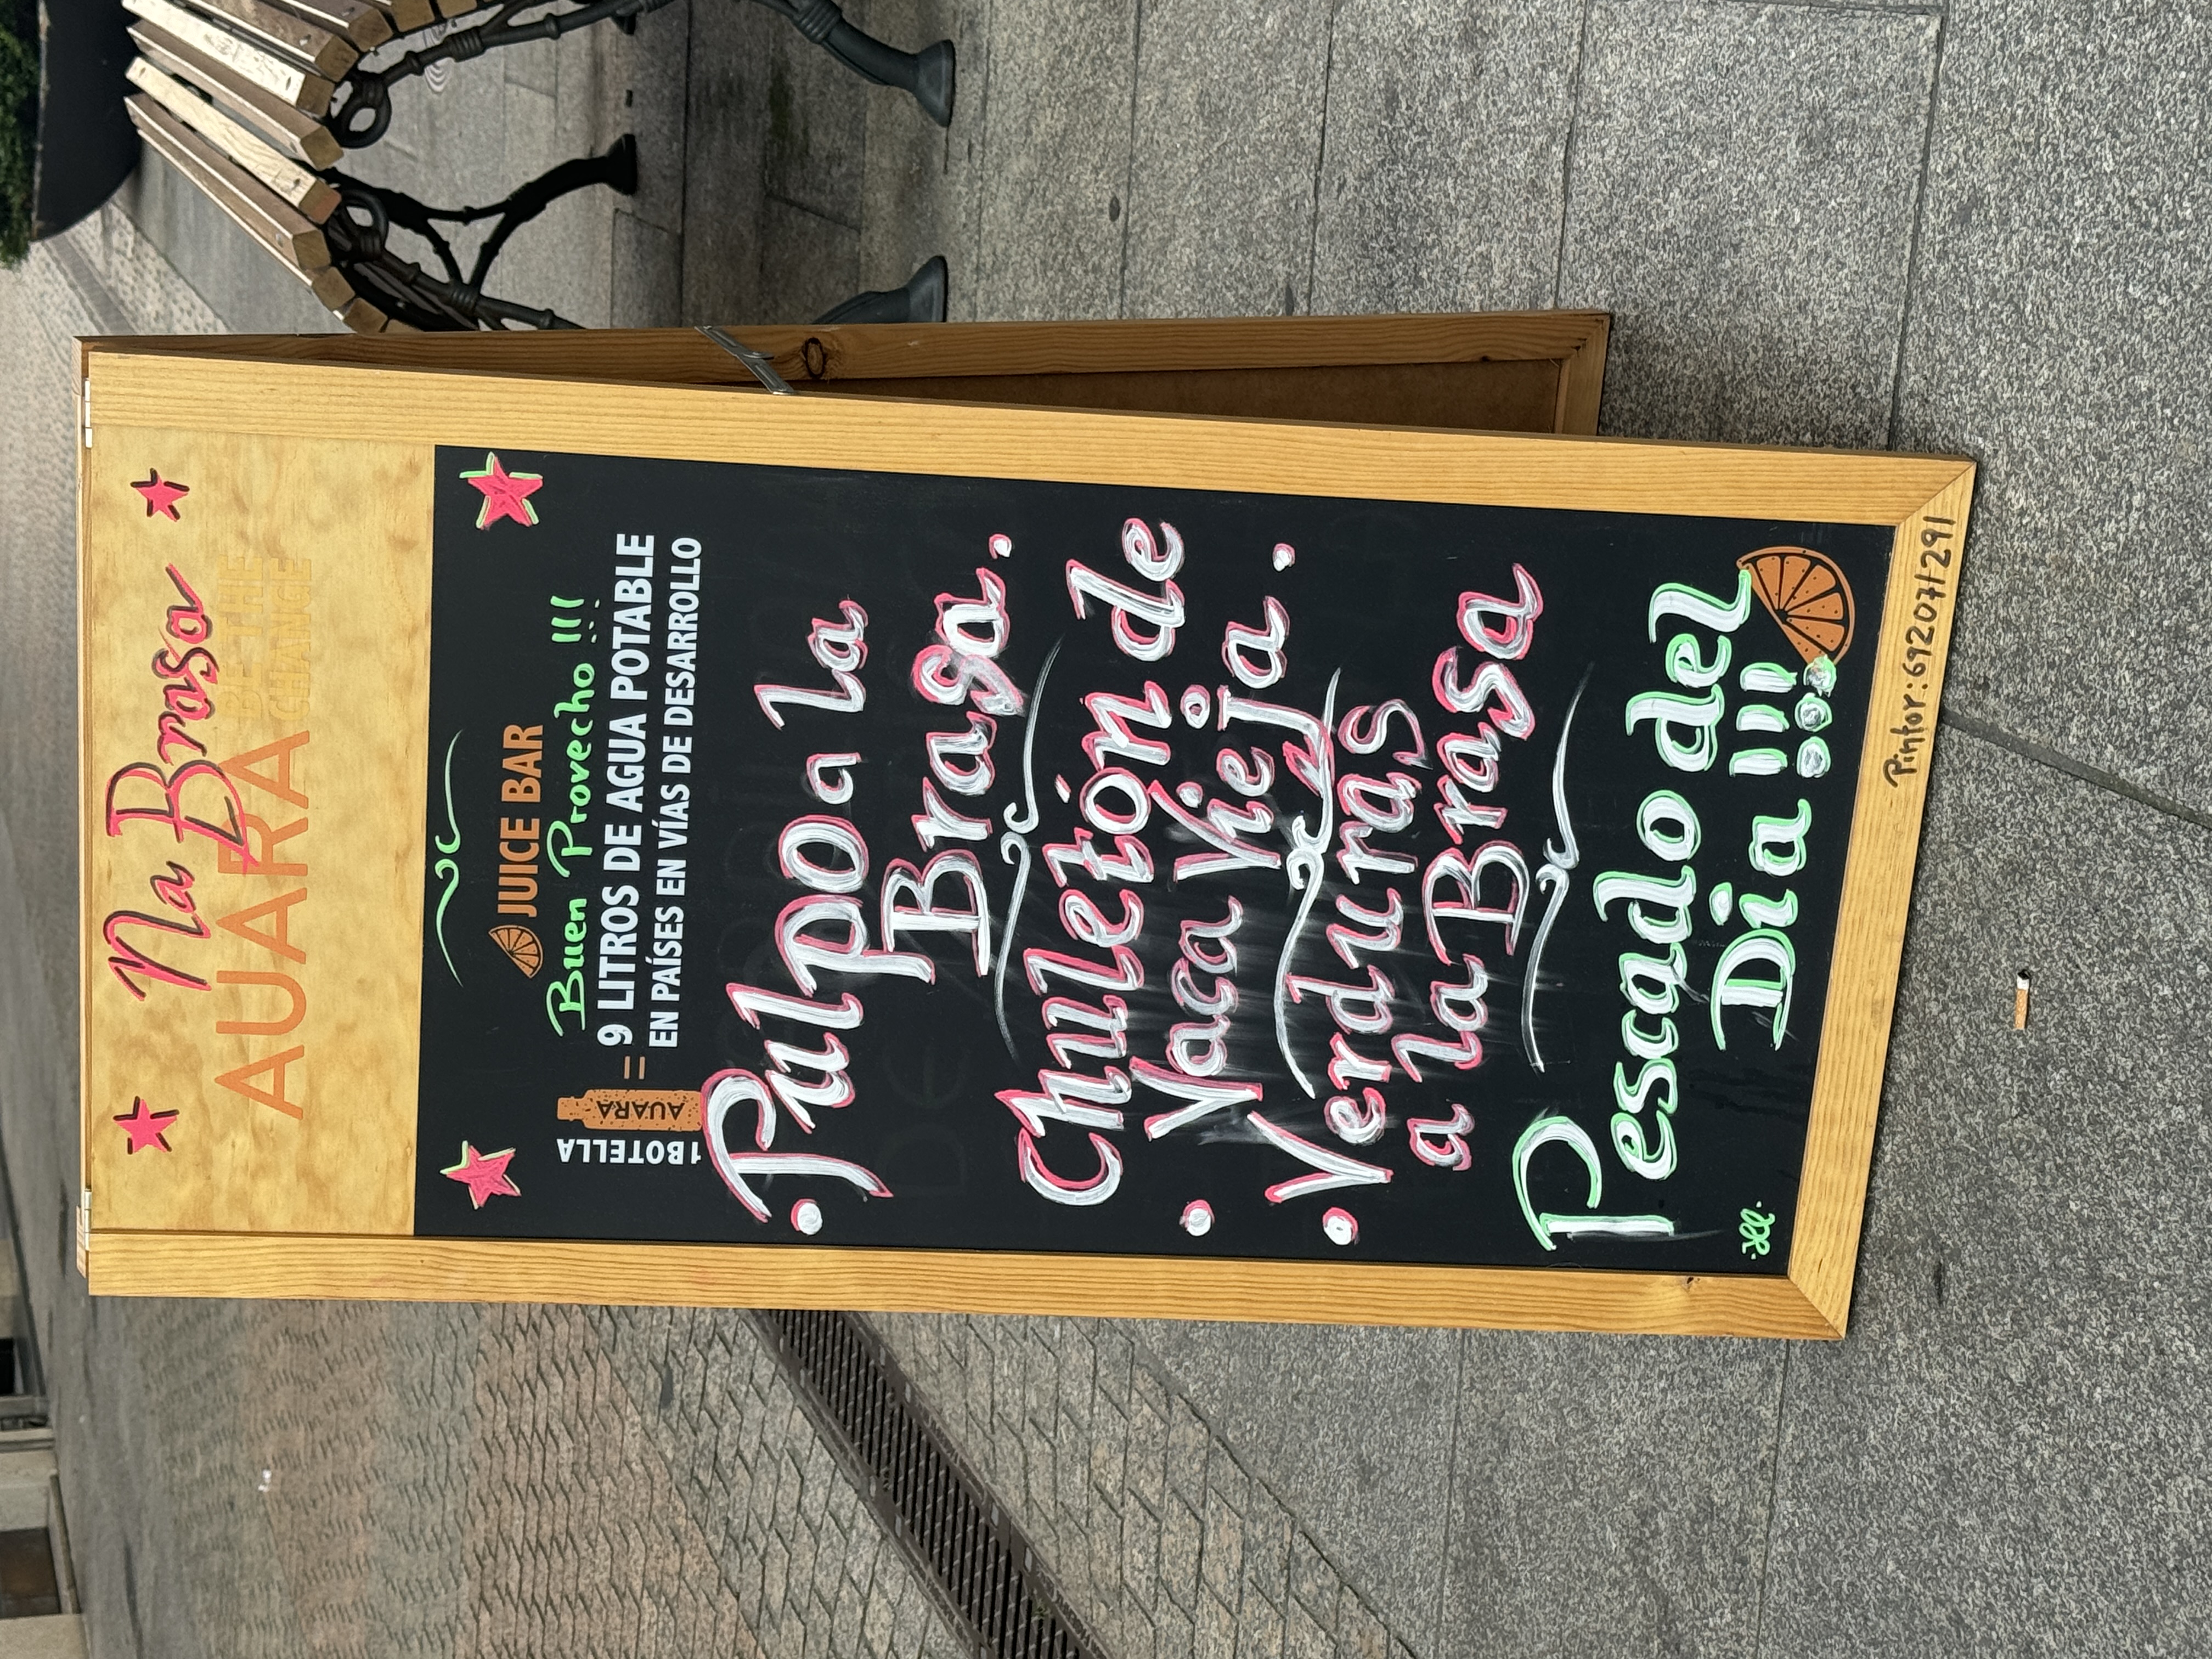 Na Brasa
AUARA BE THE CHANGE
JUICE BAR
Buen Provecho !!!
1 BOTELLA
AUARA
=
9 LITROS DE AGUA POTABLE
EN PAÍSES EN VÍAS DE DESARROLLO
• Pulpo a la
Brasa.
Chuletón de
• Vaca Vieja.
• Verduras
a la Brasa
Pescado del
Dia!!!
Pintor: 692071291